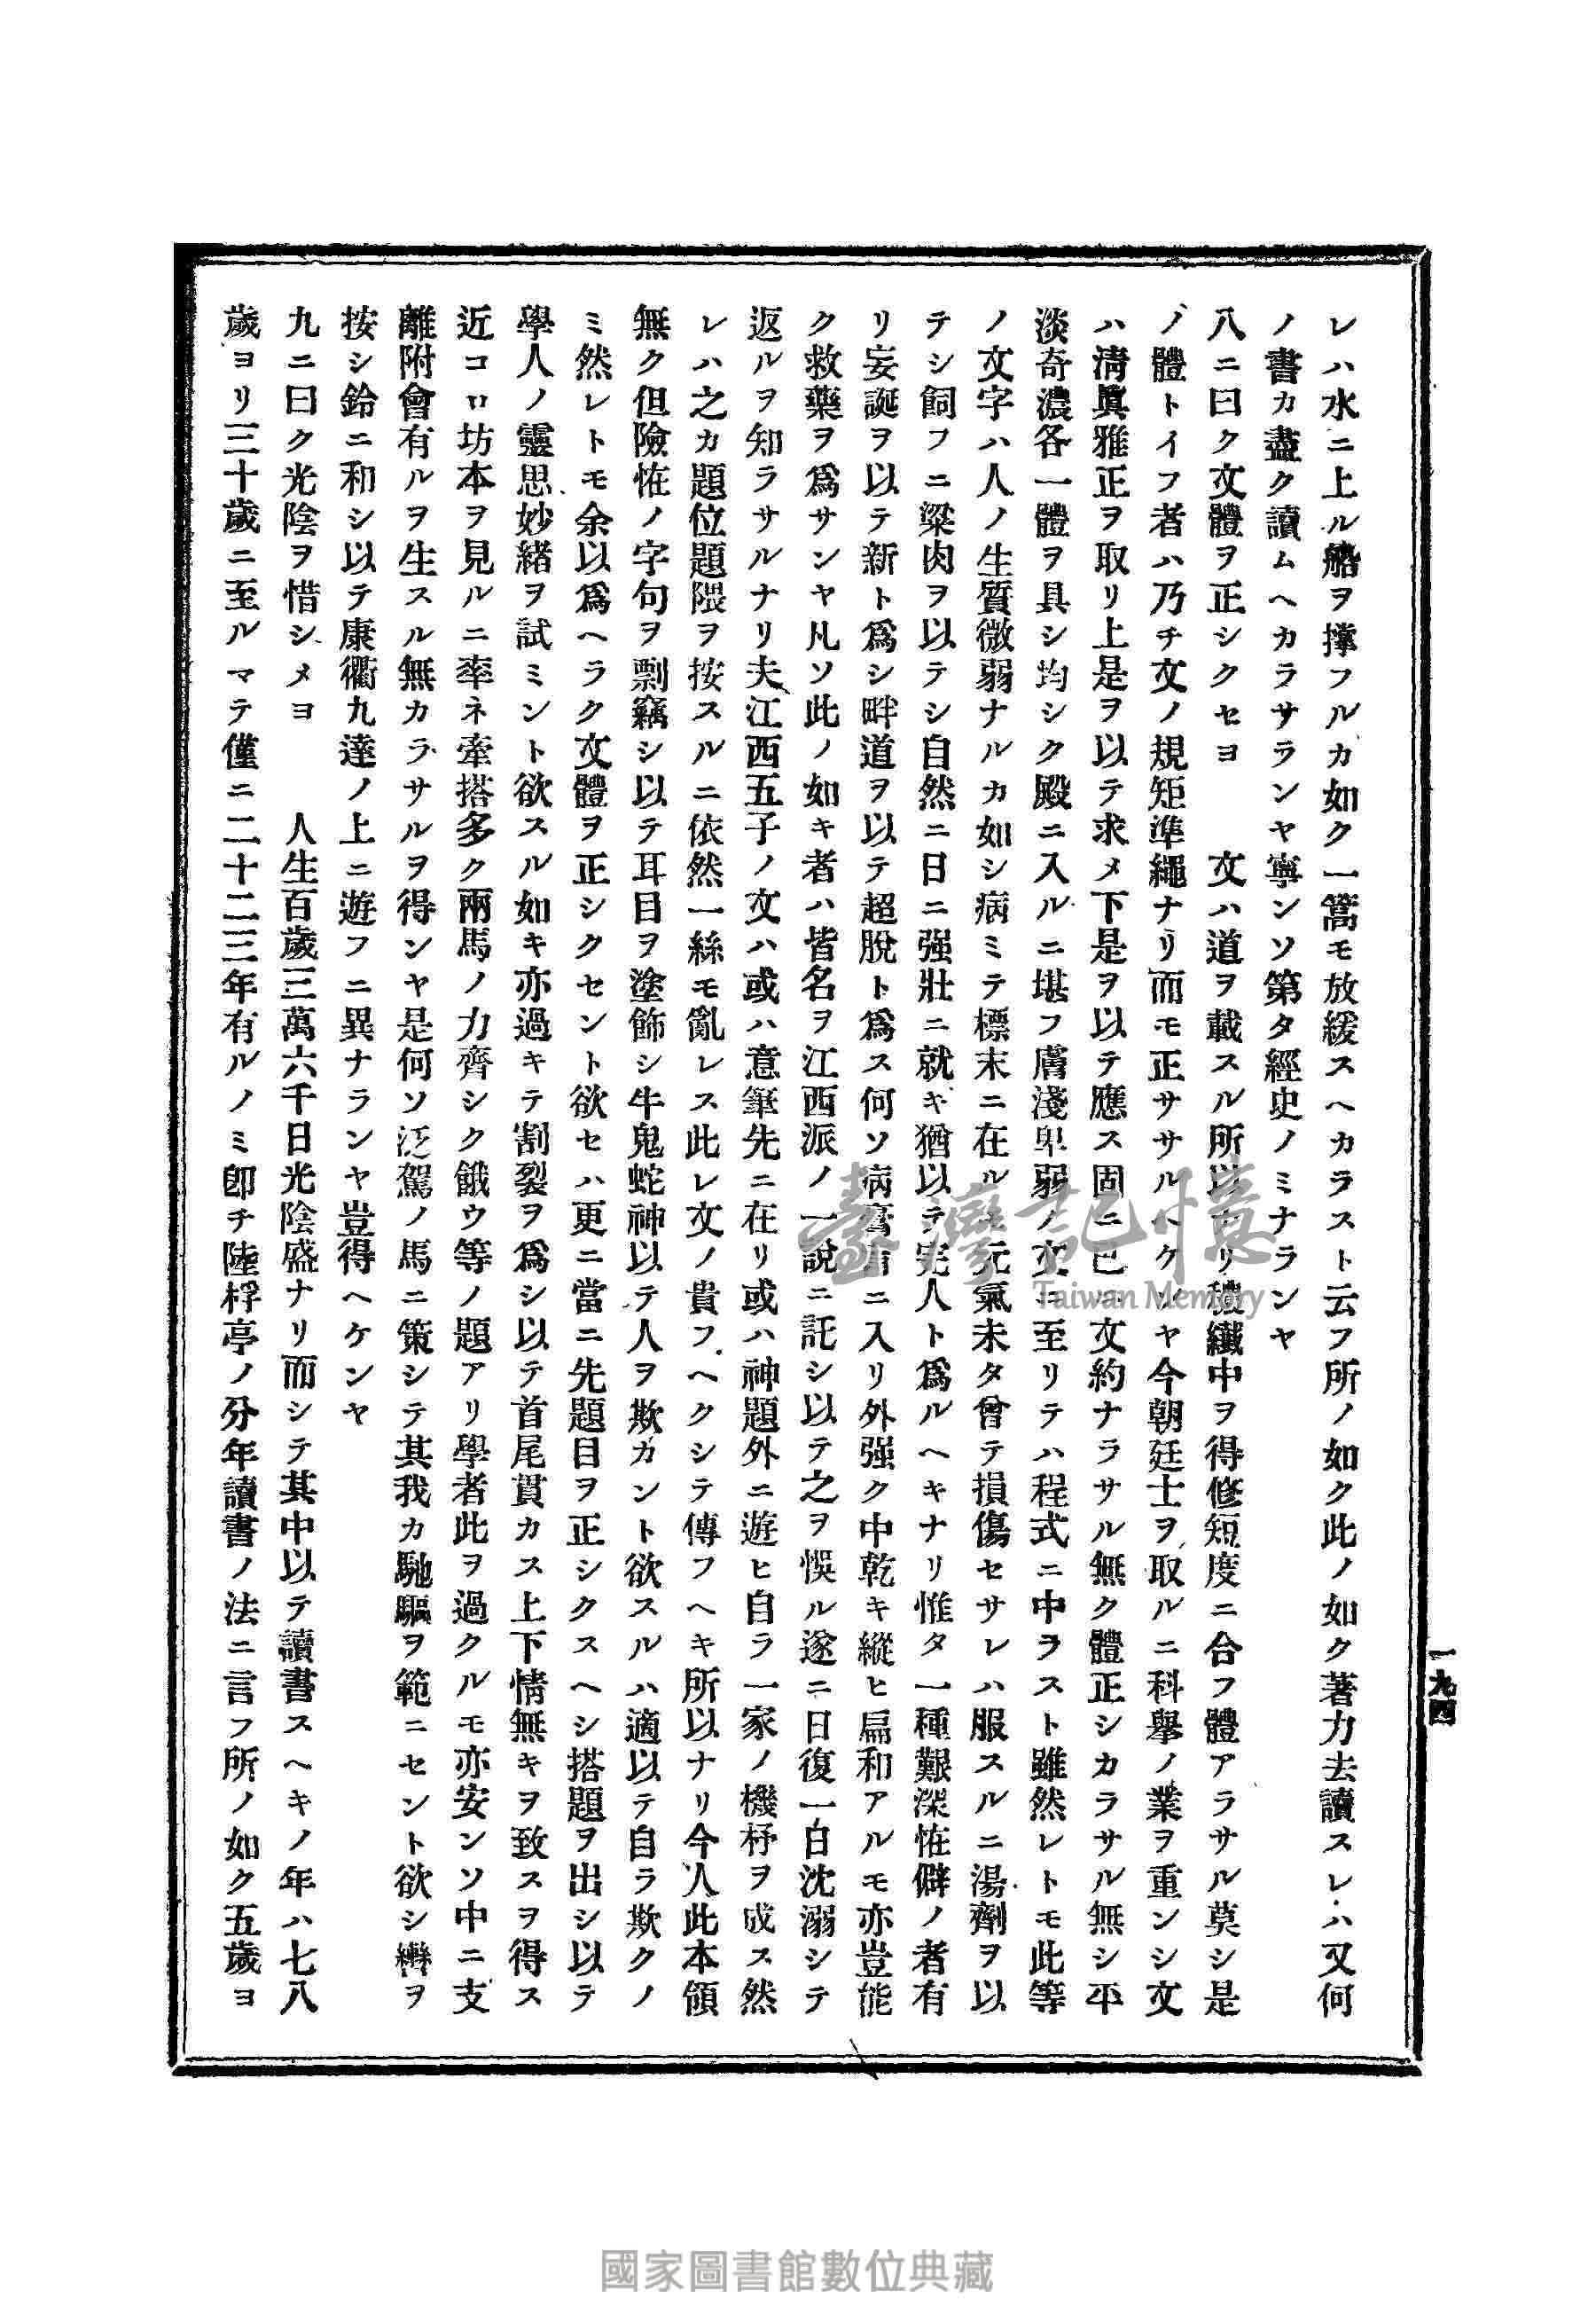 レハ水ニ上ル船ヲ撑フルカ如ク一篙モ放緩スヘカラスト云フ所ノ如ク此ノ如ク著力去讀スレハ又何
ノ書カ盡ク讀ムヘカラサランヤ寧ンソ第タ經史ノミナランヤ
八ニ曰ク文體ヲ正シクセヨ　文ハ道ヲ載スル所以ナリ穠纖中ヲ得修短度ニ合フ體アラサル莫シ是
ノ體トイフ者ハ乃チ文ノ規矩準繩ナリ而モ正サヽルヘクンヤ今朝廷士ヲ取ルニ科擧ノ業ヲ重ンシ文
ハ淸眞雅正ヲ取リ上是ヲ以テ求メ下是ヲ以テ應ス固ニ已ニ文約ナラサル無ク體正シカラサル無シ平
淡奇濃各一體ヲ具シ均シク殿ニ入ルニ堪フ膚淺卑弱ノ文ニ至リテハ程式ニ中ラスト雖然レトモ此等
ノ文字ハ人ノ生質微弱ナルカ如シ病ミテ標末ニ在ル元氣未タ曾テ損傷セサレハ服スルニ湯劑ヲ以
テシ飼フニ粱肉ヲ以テシ自然ニ日ニ强壯ニ就キ猶以テ完人ト爲ルヘキナリ惟タ一種艱深恠僻ノ者有
リ妄誕ヲ以テ新ト爲シ畔道ヲ以テ超脫ト爲ス何ソ病膏肓ニ入リ外强ク中乾キ縱ヒ扁和アルモ亦豈能
ク救藥ヲ爲サンヤ凡ソ此ノ如キ者ハ皆名ヲ江西派ノ一說ニ託シ以テ之ヲ悞ル遂ニ日復一日沈溺シテ
返ルヲ知ラサルナリ夫江西五子ノ文ハ或ハ意筆先ニ在リ或ハ神題外ニ遊ヒ自ラ一家ノ機杼ヲ成ス然
レハ之カ題位題隈ヲ按スルニ依然一絲モ亂レス此レ文ノ貴フヘクシテ傳フヘキ所以ナリ今人此本領
無ク但險恠ノ字句ヲ剽竊シ以テ耳目ヲ塗飾シ牛鬼蛇神以テ人ヲ欺カント欲スルハ適以テ自ラ欺クノ
ミ然レトモ余以爲ヘラク文體ヲ正シクセント欲セハ更ニ當ニ先題目ヲ正シクスヘシ搭題ヲ出シ以テ
學人ノ靈思妙緖ヲ試ミント欲スル如キ亦過キテ割裂ヲ爲シ以テ首尾貫カス上下情無キヲ致スヲ得ス
近コロ坊本ヲ見ルニ率ネ牽搭多ク兩馬ノ力齊シク餓ウ等ノ題アリ學者此ヲ過クルモ亦安ンソ中ニ支
離附會有ルヲ生スル無カラサルヲ得ンヤ是何ソ泛駕ノ馬ニ策シテ其我カ馳驅ヲ範ニセント欲シ轡ヲ
按シ鈴ニ和シ以テ康衢九逵ノ上ニ遊フニ異ナランヤ豈得ヘケンヤ
九ニ曰ク光陰ヲ惜シメヨ　人生百歲三萬六千日光陰盛ナリ而シテ其中以テ讀書スヘキノ年ハ七八
歲ヨリ三十歲ニ至ルマテ僅ニ二十二三年有ルノミ卽チ陸桴亭ノ分年讀書ノ法ニ言フ所ノ如ク五歲ヨ
一九四
臺灣記憶
Taiwan Memory
國家圖書館數位典藏